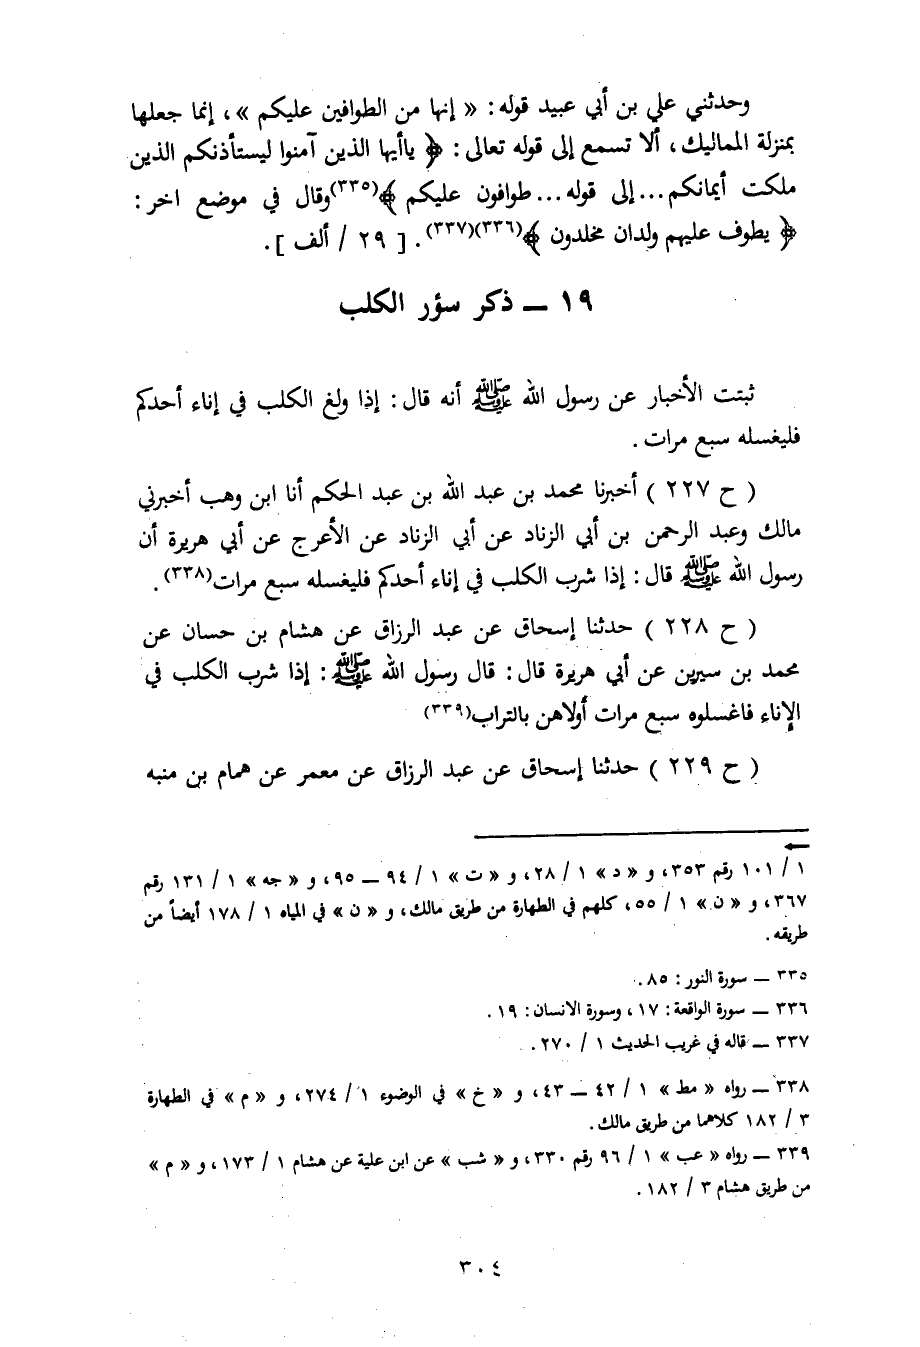 وحدثني علي بن أبي عبيد قوله : « إنها من الطوافين عليكم » ، إنما جعلها
بمنزلة المماليك ، ألا تسمع إلى قوله تعالى : ﴿ ياأيها الذين آمنوا ليستأذنكم الذين
ملكت أيمانكم ... إلى قوله ... طوافون عليكم ﴾(٣٣٥) وقال في موضع اخر :
﴿ يطوف عليهم ولدان مخلدون ﴾(٣٣٦)(٣٣٧) . [ ٢٩ / ألف ] .
١٩ ــ ذكر سؤر الكلب
ثبتت الأخبار عن رسول الله ﷺ أنه قال : إذا ولغ الكلب في إناء أحدكم
فليغسله سبع مرات .
( ح ٢٢٧ ) أخبرنا محمد بن عبد الله بن عبد الحكم أنا ابن وهب أخبرني
مالك وعبد الرحمن بن أبي الزناد عن أبي الزناد عن الأعرج عن أبي هريرة أن
رسول الله ﷺ قال : إذا شرب الكلب في إناء أحدكم فليغسله سبع مرات(٣٣٨) .
( ح ٢٢٨ ) حدثنا إسحاق عن عبد الرزاق عن هشام بن حسان عن
محمد بن سيرين عن أبي هريرة قال : قال رسول الله ﷺ : إذا شرب الكلب في
الإناء فاغسلوه سبع مرات أولاهن بالتراب(٣٣٩)
( ح ٢٢٩ ) حدثنا إسحاق عن عبد الرزاق عن معمر عن همام بن منبه
←
١ / ١٠١ رقم ٣٥٣ ، و « د » ١ / ٢٨ ، و « ت » ١ / ٩٤ ــ ٩٥ ، و « جه » ١ / ١٣١ رقم
٣٦٧ ، و « ن » ١ / ٥٥ ، كلهم في الطهارة من طريق مالك ، و « ن » في المياه ١ / ١٧٨ أيضاً من
طريقه .
٣٣٥ ــ سورة النور : ٨٥ .
٣٣٦ ــ سورة الواقعة : ١٧ ، وسورة الانسان : ١٩ .
٣٣٧ ــ قاله في غريب الحديث ١ / ٢٧٠ .
٣٣٨ ــ رواه « مط » ١ / ٤٢ ــ ٤٣ ، و « خ » في الوضوء ١ / ٢٧٤ ، و « م » في الطهارة
٣ / ١٨٢ كلاهما من طريق مالك .
٣٣٩ ــ رواه « عب » ١ / ٩٦ رقم ٣٣٠ ، و « شب » عن ابن علية عن هشام ١ / ١٧٣ ، و « م »
من طريق هشام ٣ / ١٨٢ .
٣٠٤